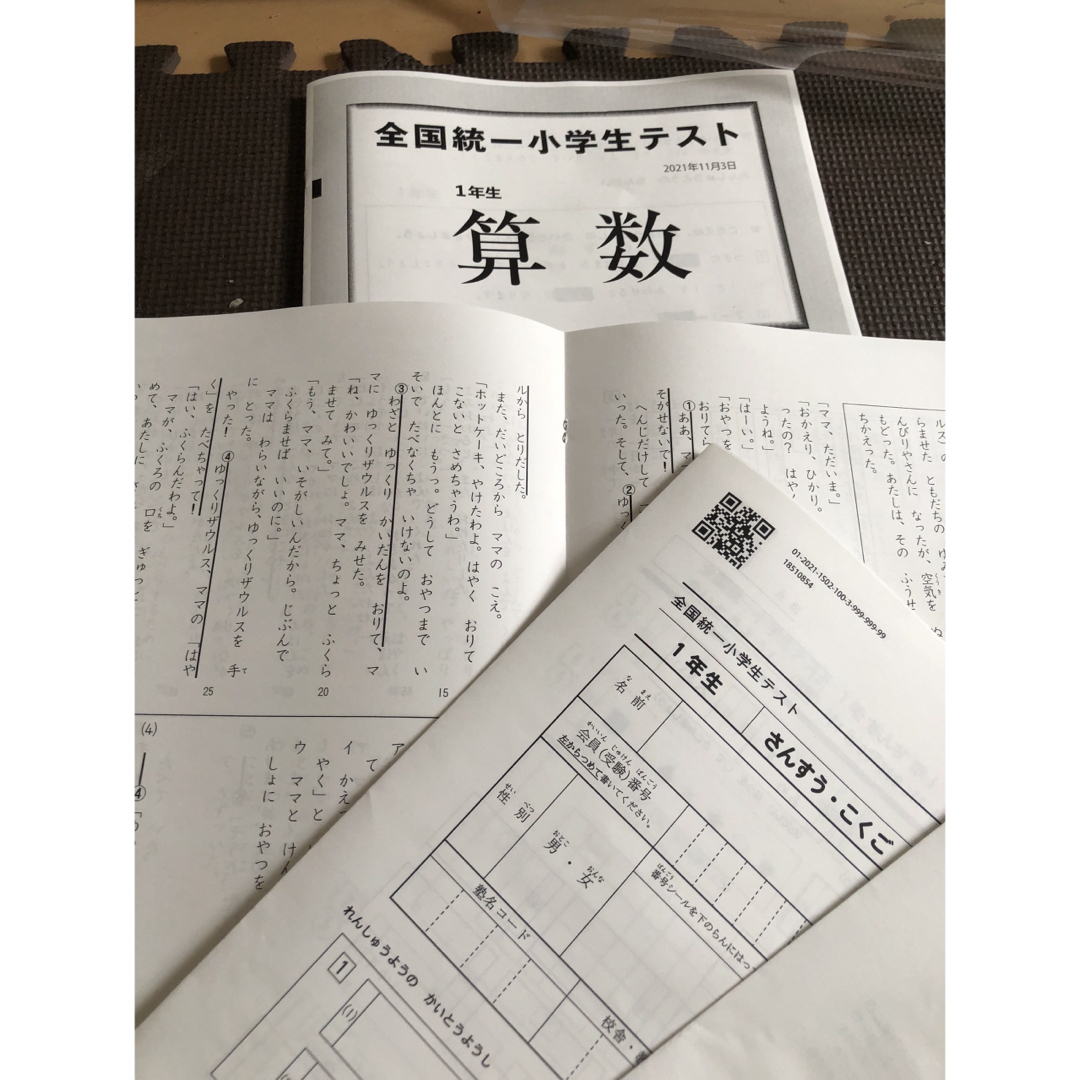 全国統一小学生テスト
2021年11月3日
1年生
算数
ルス」の
らませた ともだちの ゆみ
んびりやさんに なったが、空気を
もどった。あたしは、その ふうせ
ちがえった。
「ママ、ただいま。」
「おかえり、ひかり。
ったの？ はやく
ようね。」
「はーい。」
「おやつを
おりてら
①ああ、マ
そがせないで！
へんじだけして
いった。そして、②ゆっ
ルから とりだした。
また、だいどころから ママの こえ。
「ホットケーキ、やけたわよ。はやく おりて
こないと さめちゃうわ。」
ほんとに もうっ。どうして おやつまで い
そいで たべなくちゃ いけないのよ。
③わざと ゆっくり かいだんを おりて、マ
マに ゆっくりザウルスを みせた。
「ね、かわいいでしょ。ママ、ちょっと ふくら
ませて みて。」
「もう、ママ、いそがしいんだから。じぶんで
ふくらませば いいのに。」
ママは わらいながら、ゆっくりザウルスを 手
にとった。
やった！ ④ゆっくりザウルス、ママの 「はや
く」を たべちゃって！
「はい、ふくらんだわよ。」
ママが、ふくろの 口を ぎゅっと
めて、あたしに さ
15
20
25
(4)
④
ア
て
イ かえ
やく」と
ウ ママと けん
しょに おやつを
01-2021-1S02-100-3-999-999-99
18510854
全国統一小学生テスト
1年生
さんすう・こくご
名前
会員（受験）番号
左からつめて書いてください。
性別
男・女
番号シールを下のらんにはっ
塾名コード
校舎・
れんしゅうようの かいとうようし
1
(1)